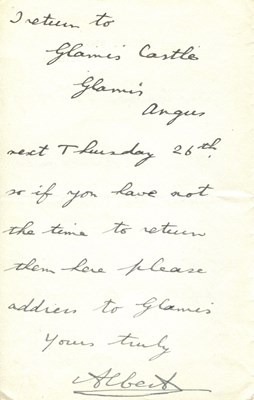 I return to
Glamis Castle
Glamis
Angus
next Thursday 26th.
so if you have not
the time to return
them here please
address to Glamis
Yours truly
Albert